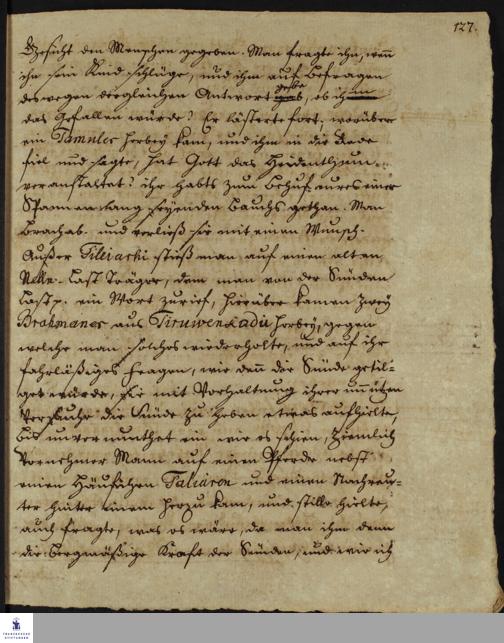 127.
Gesicht den Menschen gegeben. Man fragte ihn, wenn
ihn sein Kind schlüge, und ihm auf Befragen
deswegen dergleichen Antwort gebe, ob ihm
das gefallen würde? Er lästerte fort, worüber
ein Tamuler herbey kam, und ihm in die Rede
fiel und sagte, hat Gott das Heidenthum
veranstaltet? ihr habts zum Behuf eures einer
Spannen lang seyenden Bauchs gethan. Man
brach ab und verließ sie mit einen Wunsch.
Außer Tiliarhi stieß man auf einen alten
Nelle-Last Träger, dem man von der Sünden
Last ein Wort zurief, hierüber kamen zwey
Brahmanes aus Tiruwenkadu herbey, gegen
welche man solches wiederholte, und auf ihr
fahrläßiges fragen, wie dann die Sünde getil-
get würde, sie mit Vorhaltung ihrer unnützen
Versuche die Sünde zu heben etwas aufhielte,
bis unvermuthet ein wie es schien, ziemlich
Vornehmer Mann auf einen Pferde nebst
einen Häufchen Taliaren und einen Nachreu-
ter hinter einem herzu kam, und stille hielte,
auch fragte, was es wäre, da man ihm denn
die bergmäßige Kraft der Sünden, und wie ich
FRANCKESCHE
STIFTUNGEN